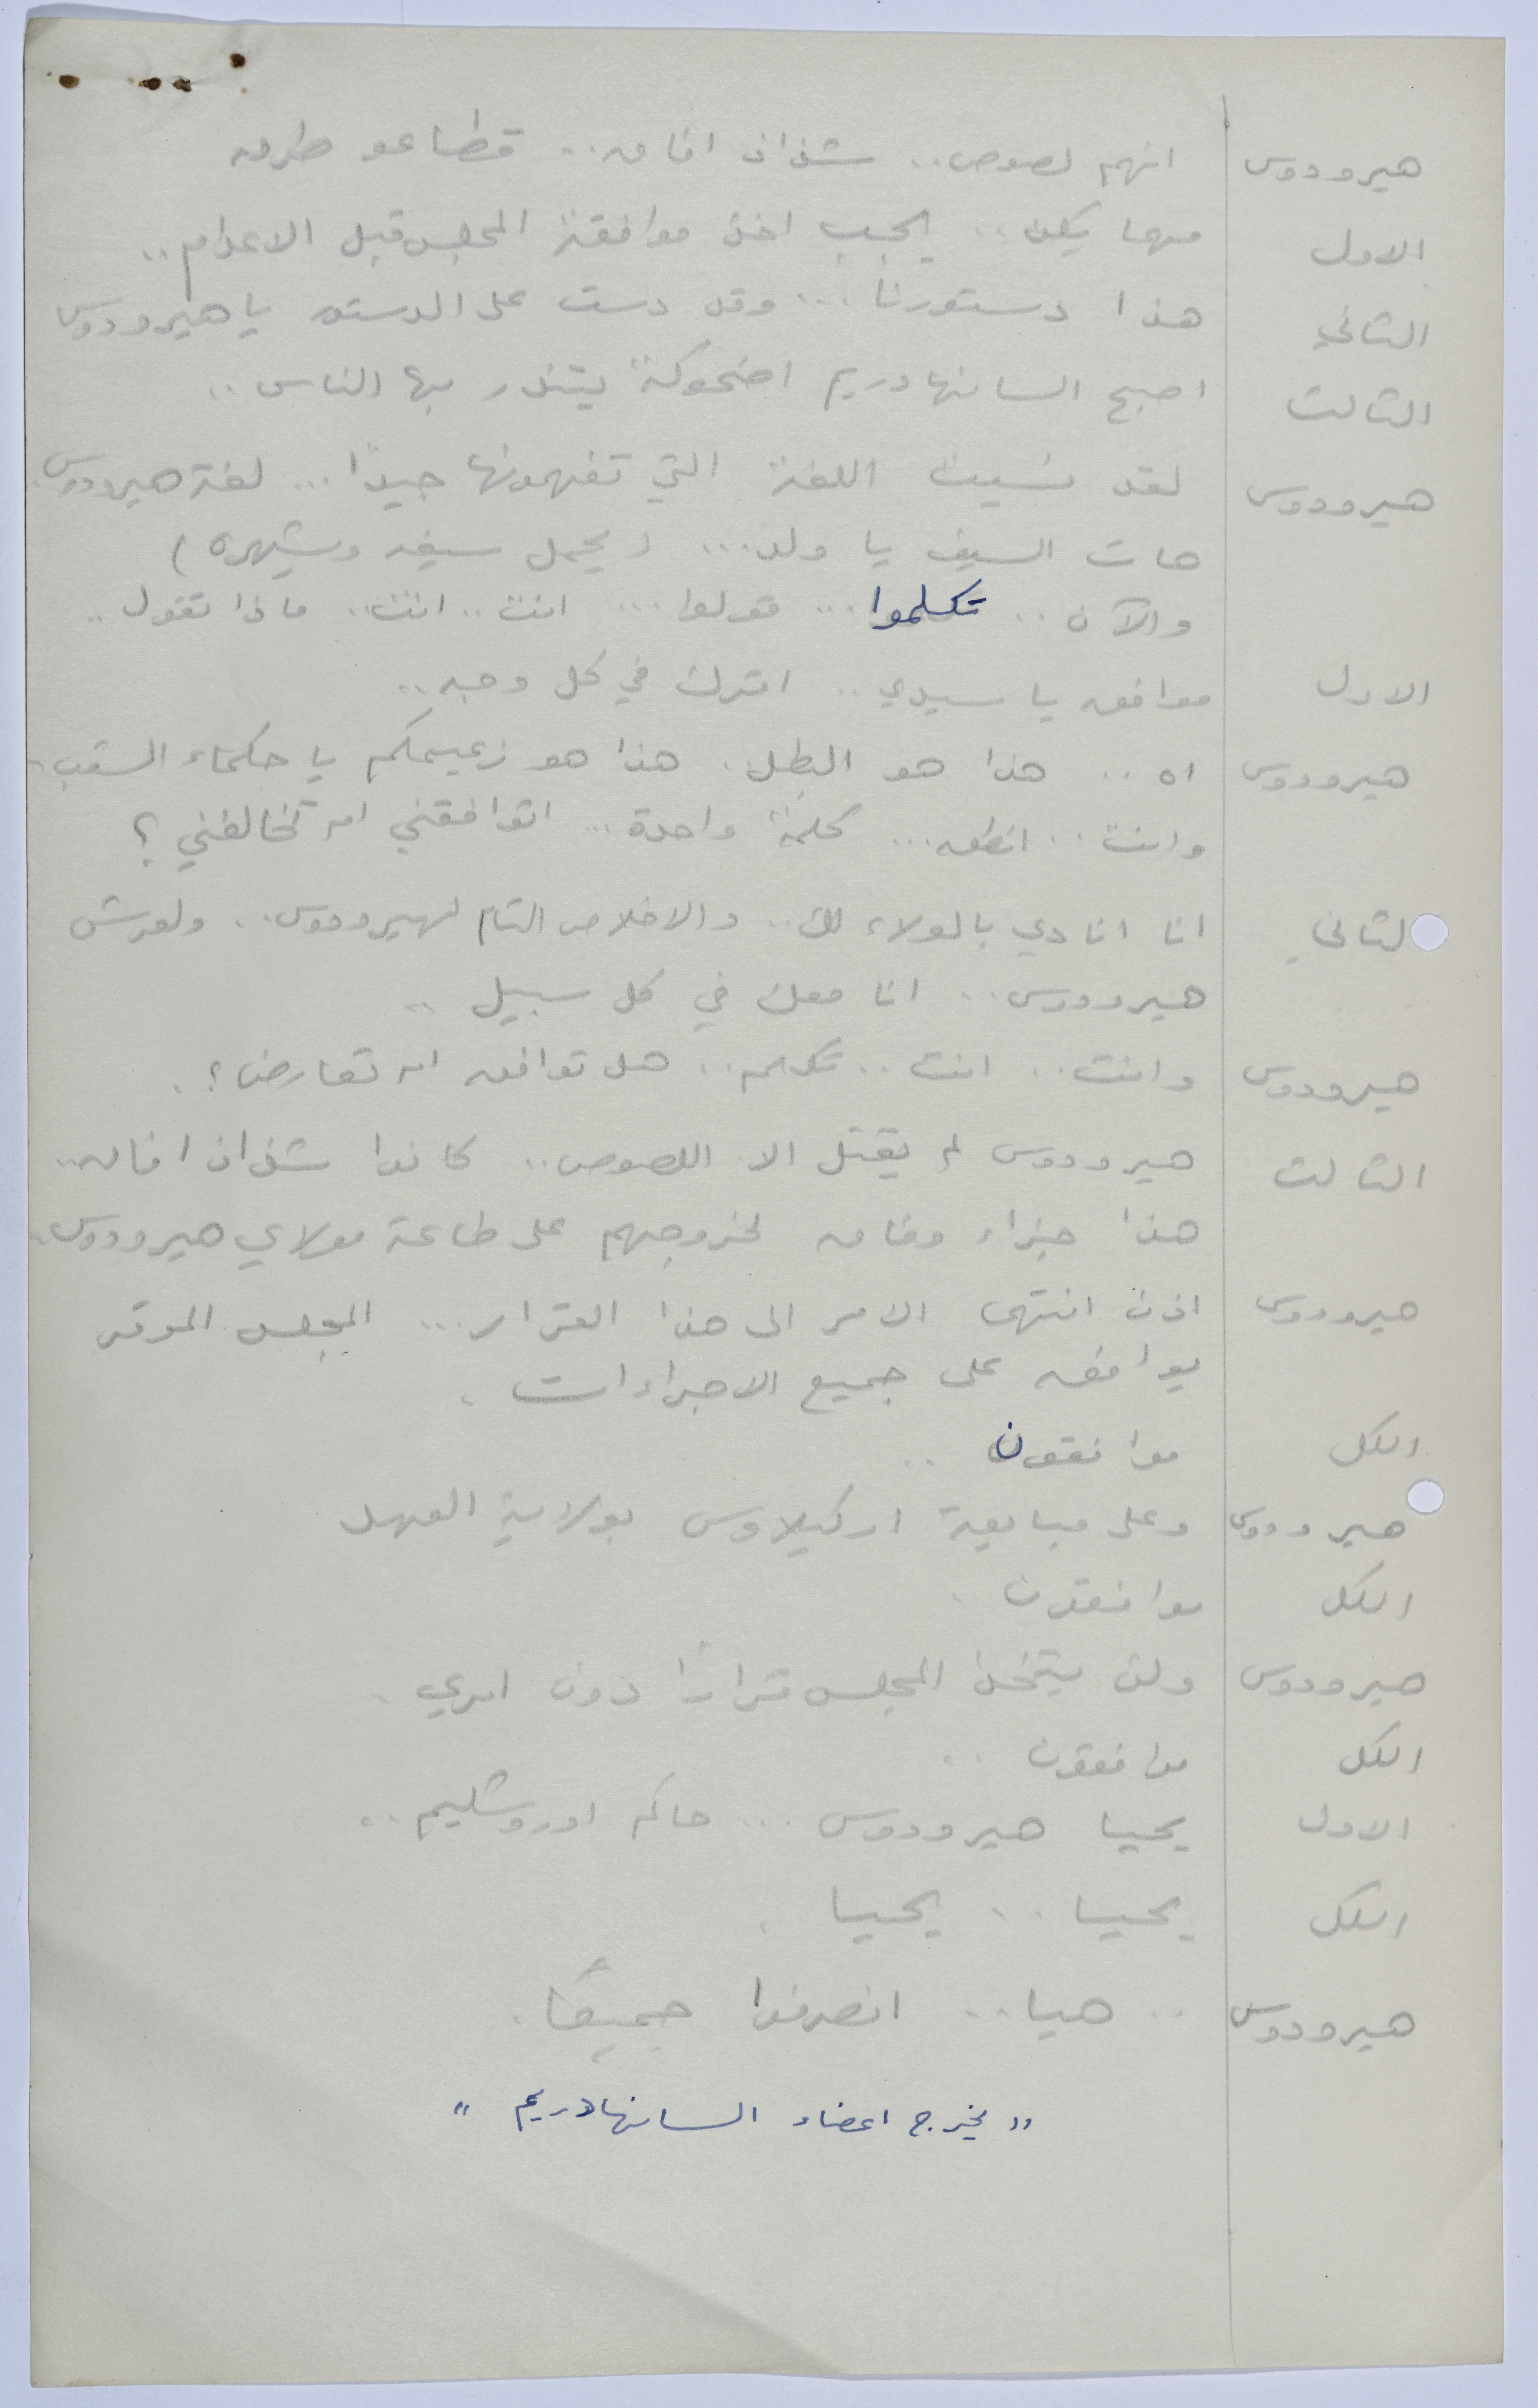 هيرودوس انهم لصوص.. شذاذ افاق.. قطاعو طرق
الاول مهما يكن.. يجب اخذ موافقة المجلس قبل الاعدام..
الثاني هذا دستورنا... وقد دست على الدستور يا هيرودوس
الثالث اصبح السانهادريم اضحوكة يتندر بها الناس..
هيرودوس لقد نسيت اللغة التي تفهمونها جيدًا... لغة هيرودوس.
هات السيف يا ولد... (يحمل سيفه ويشهره)
والآن.. تكلموا... قولوا... انت.. انت.. ماذا تقول..
الاول موافق يا سيدي.. اقرك في كل وجه..
هيرودوس اه.. هذا هو البطل. هذا هو زعيمكم يا حكماء الشعب..
وانت.. انطق... كلمة واحدة... اتوافقني ام تخالفني؟
لثاني انا انادي بالولاء لك.. والاخلاص التام لهيرودوس.. ولعرش
هيرودوس.. انا معك في كل سبيل..
هيرودوس وانت.. انت.. تكلم.. هل توافق ام تعارض؟.
الثالث هيرودوس لم يقتل الا اللصوص.. كانوا شذاذ افاق..
هذا جزاء وفاق لخروجهم على طاعة مولاي هيرودوس.
هيرودوس اذن انتهى الامر الى هذا القرار... المجلس الموقر
يوافق على جميع الاجراءات.
الكل موافقون..
هيرودوس وعلى مبايعة اركيلاوس بولاية العهد
الكل موافقون.
هيرودوس ولن يتخذ المجلس قرارًا دون امري.
الكل موافقون..
الاول يحيا هيرودوس... حاكم اوروشليم..
الكل يحيا.. يحيا.
هيرودوس .. هيا.. انصرفوا جميعًا.
"يخرج اعضاء السانهادريم"